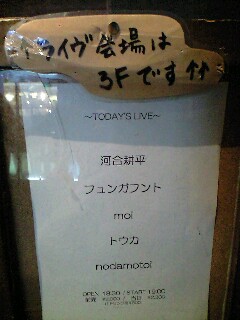 ライヴ会場は
3Fです↑↑
~TODAY'S LIVE~
河合耕平
フュンガフント
moi
トウカ
nodamotoi
OPEN 18:30 / START 19:00